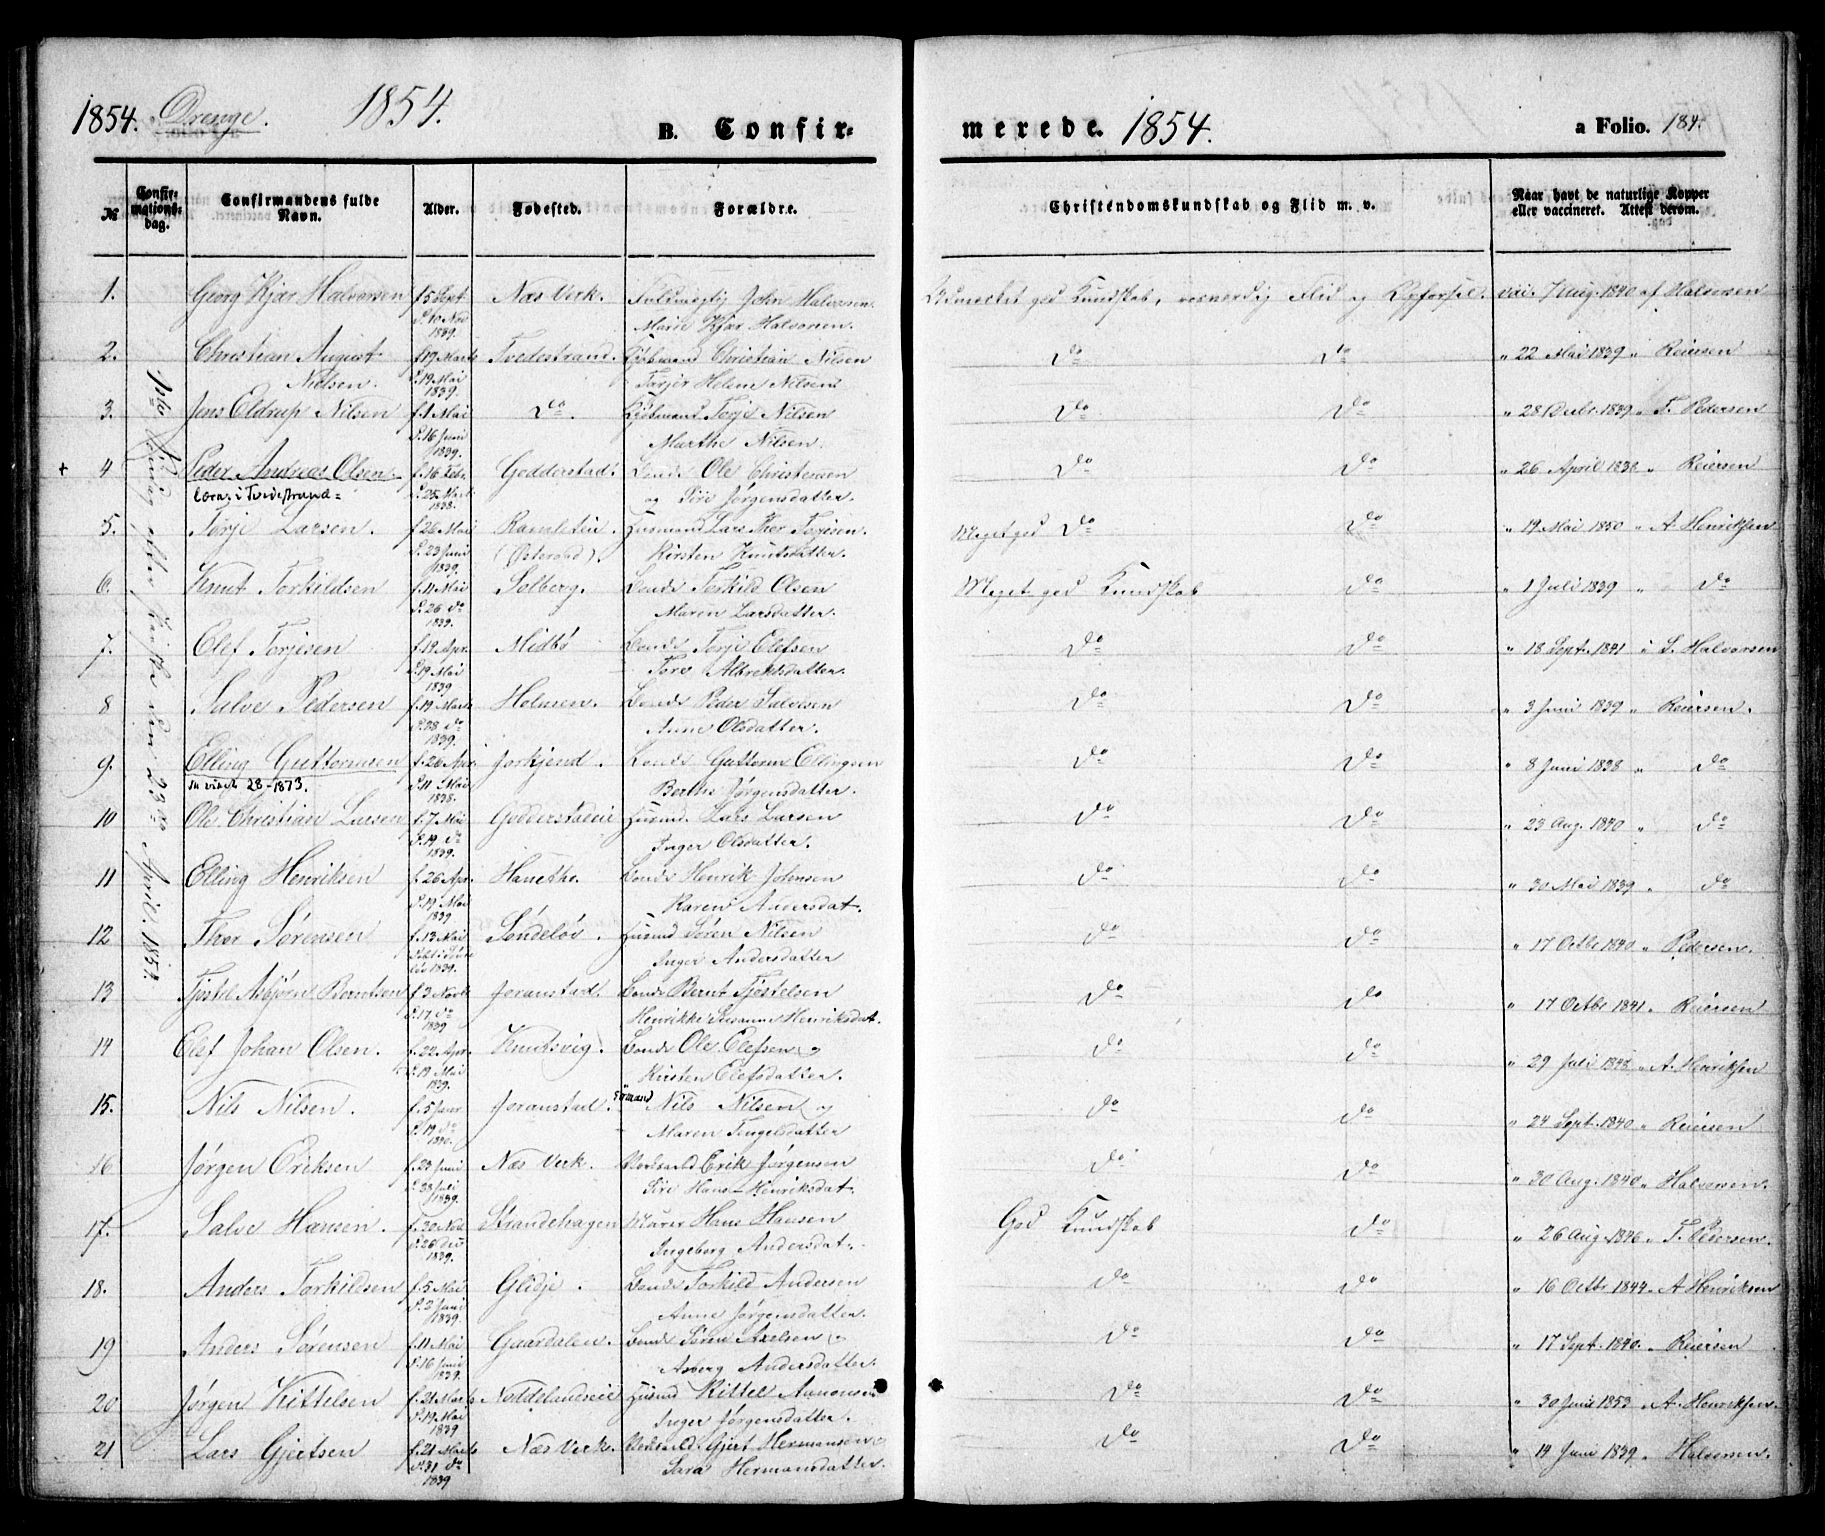 1854. Drenge. 1854. B. Confir-
merede. 1854. a Folio. 184.
№ Confir-mations-dag. Confirmandens fulde Navn. Alder. Fødested. Forældre.
Christendomskundskab og Flid m. v. Naar havt de naturlige Kopper eller vaccineret. Attest derom.
1ste Søndag efter Paaske den 23de April 1854.
1. Georg Kjær Halvorsen f. 5 Sept. Næs Verk. Fuldmegtig John Halvorsen
d. 10 Nov 1839. Marie Kjær Halvorsen.
god Kundskab, Flid og Opførsel. vac. 7 Aug. 1840 af Halvorsen
2. Christian August f. 19 Marts Tvedestrand. Kjøbmand Christian Nilsen
Nielsen. d. 19 Mai 1839. Helene Nilsen
Do Do " 22 Mai 1839 " Reiersen
3. Jens Eldrup Nilsen f. 1 Mai Do. Kjøbmand Terje Nilsen
d. 16 Juni 1839. Marthe Nilsen.
Do Do " 28 Decbr. 1839 " T. Pedersen
+ 4 Peder Andreas Olsen. f. 16 Febr. Godderstad. Bonde Ole Christensen
i Tvedestrand= d. 25 Marts 1838. og Siri Jørgensdatter.
Do Do " 26 April 1838 " Reiersen
5. Terje Larsen. f. 26 Mai Ramleieie Husmand Lars Ther Terjesen.
d. 23 Juni 1839. (Østeraad). Kirsten Knutsdatter.
Meget god Do Do " 19 Mai 1850 " A Henriksen
6. Knut Torkildsen f. 11 Mai Solberg. Bonde Torkild Olsen
d. 26 do 1839. Maren Larsdatter.
Meget god Kundskab Do " 1 Juli 1839 " Do
7. Olef Terjesen f. 19 Apr. Midbø Bonde Terje Olefsen
d. 19 Mai 1839 Tore Albrektsdatter.
Do Do " 18 Sept. 1841 " S. Halvorsen
8 Salve Pedersen f. 19 Marts Holmen. Bonde Peder Salvesen
d. 28 do 1839. Anne Olsdatter.
Do Do " 3 Juni 1839 " Reiersen.
9. Elling Guttormsen f. 26 Apr. Jorkjend. Bonde Guttorm Ellingsen
28-1873. d. 11 Mai 1838. Berthe Jørgensdatter.
Do Do " 8 Juni 1838 " Do
10 Ole Christian Larsen f. 7 Mai Godderstadeie Husmd. Lars Larsen
d. 19 do 1839. Inger Olsdatter.
Do Do " 23 Aug. 1840 " Do
11 Elling Henriksen f. 26 Apr. Hanetho. Bonde Henrik Johnsen
d. 19 Mai 1839 Karen Andersdat.
Do Do " 30 Mai 1839 " Do
12 Ther Sørensen f. 13 Mai Søndeløv. Husmd Søren Nilsen
1839. Inger Andersdatter
Do Do " 17 Octbr 1840 " Pedersen.
13 Tjøstel Asbjørn Berntsen f. 3 Novbr Joranstad. Bonde Bernt Tjøstelsen
d. 17 do 1839 Henrikke Susanne Henriksdat.
Do Do " 17 Octbr 1841 " Reiersen
14 Olef Johan Olsen. f. 22 Apr. Knutsvig. Bonde Ole Olefsen &
d. 19 Mai 1839. Kirsten Olefsdatter.
Do Do " 29 Juli 1848 " A. Henriksen
15. Nils Nilsen. f. 5 Janr Joranstad. Sømand Nils Nilsen &
d. 19 do 1840. Maren Tingelsdatter
Do Do " 24 Sept. 1840 " Reiersen
16 Jørgen Eriksen f. 23 Juni Næs Verk. Erik Jørgensen
d. 28 Juli 1839. Siri Hans-Henriksdat.
Do Do " 30 Aug. 1840 " Halvorsen.
17. Salve Hansen. f. 30 Nov. Strandehagen Murer Hans Hansen
d. 26 Dec 1839. Ingeborg Andersdat.
God Kundskab Do " 26 Aug. 1846 " T. Pedersen.
18. Anders Torkildsen f. 5 Mai Glidje. Bonde Torkild Andersen
d. 2 Juni 1839. Anne Jørgensdatter.
Do Do " 16 Octbr 1844 " A Henriksen
19 Anders Sørensen f. 11 Mai Gaardalen. Bonde Søren Axelsen &
d. 16 Juni 1839. Asberg Andersdatter.
Do Do " 17 Sept. 1840. " Reiersen
20 Jørgen Kittelsen f. 21 Marts Noddelandseie Husmd Kittel Aanonsen
d. 19 Mai 1839 Inger Jørgensdatter.
Do Do " 30 Juni 1853 " A. Henriksen.
21 Lars Gjertsen f. 21 Marts Næs Verk. Gjert Hermansen &
d. 31 do 1839 Sara Hermansdatter.
Do Do " 14 Juni 1839 " Halvorsen.